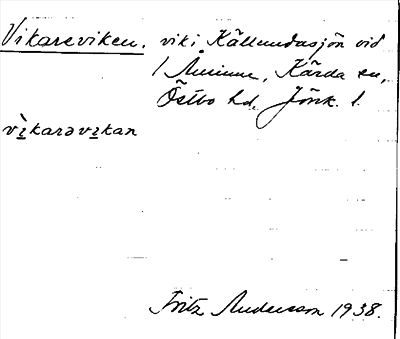 Vikareviken. vik i Källundasjön vid
Kärda sn,
Östbo hd, Jönk. l.
vìkarəvikan
Fritz Andersson 1938.